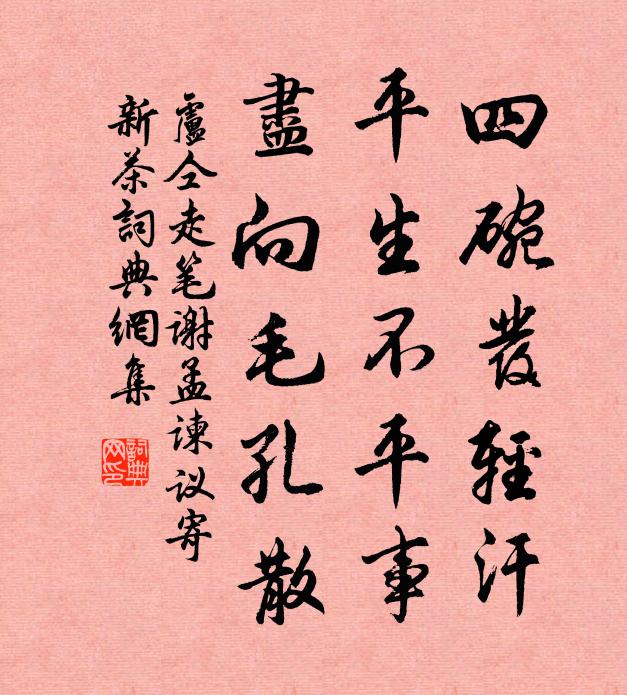 四碗發輕汗
平生不平事
盡向毛孔散
盧仝走笔謝孟諫议寄
新茶詞典網集
詞典
网印